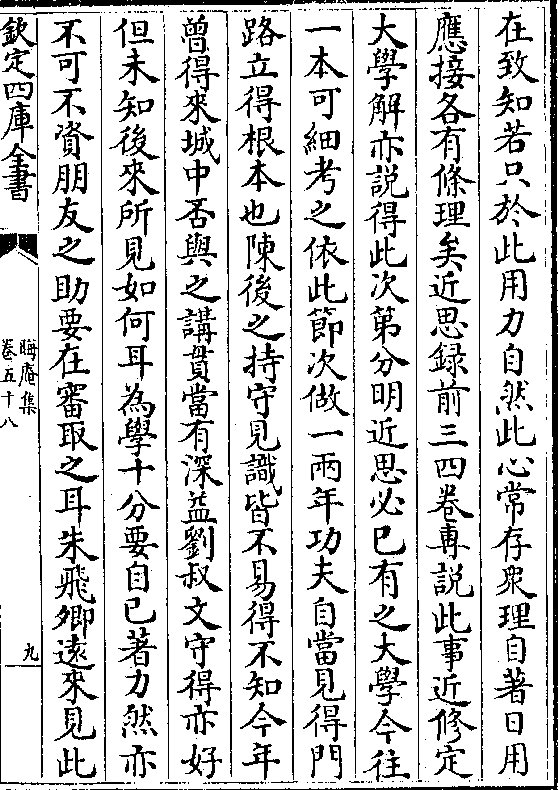 在致知若只於此用力自然此心常存衆理自著日用
應接各有條理矣近思録前三四卷専説此事近修定
大學解亦説得此次第分明近思必已有之大學今往
一本可細考之依此節次做一兩年功夫自當見得門
路立得根本也陳後之持守見識皆不易得不知今年
曾得來城中否與之講貫當有深益劉叔文守得亦好
但未知後來所見如何耳為學十分要自己著力然亦
不可不資朋友之助要在審取之耳朱飛卿逺來見此
欽定四庫全書
晦庵集
卷五十八
九